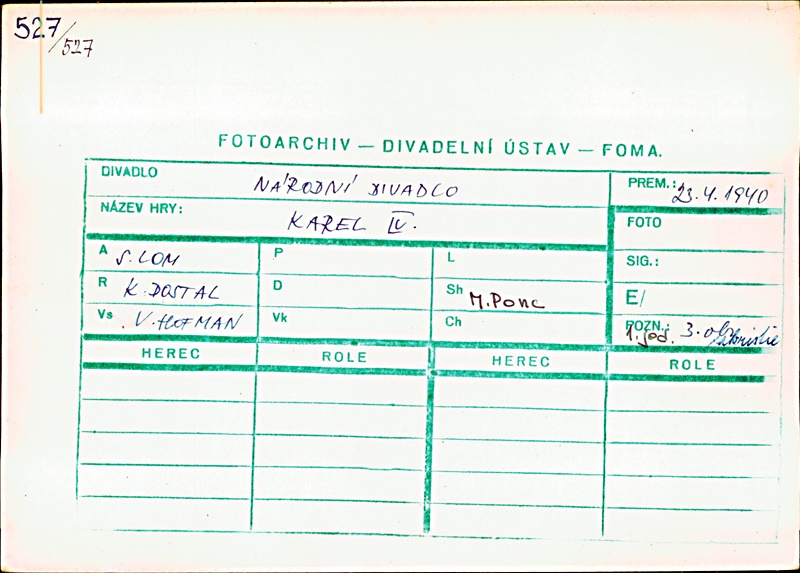 527/527
FOTOARCHIV — DIVADELNÍ ÚSTAV — FOMA.
DIVADLO NÁRODNÍ DIVADLO PREM.: 23.4.1940
NÁZEV HRY: KAREL IV. FOTO
A S. LOM P L SIG.:
R K. DOSTAL D Sh M. Ponc E/
Vs V. HOFMAN Vk Ch POZN.: 1. jed. 3. obr.
HEREC ROLE HEREC ROLE